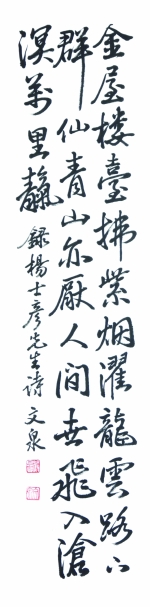 金屋楼臺拂紫烟濯龍雲路下
群仙青山亦厭人間世飛入滄
溟萬里靝
録楊士彦先生詩 文泉